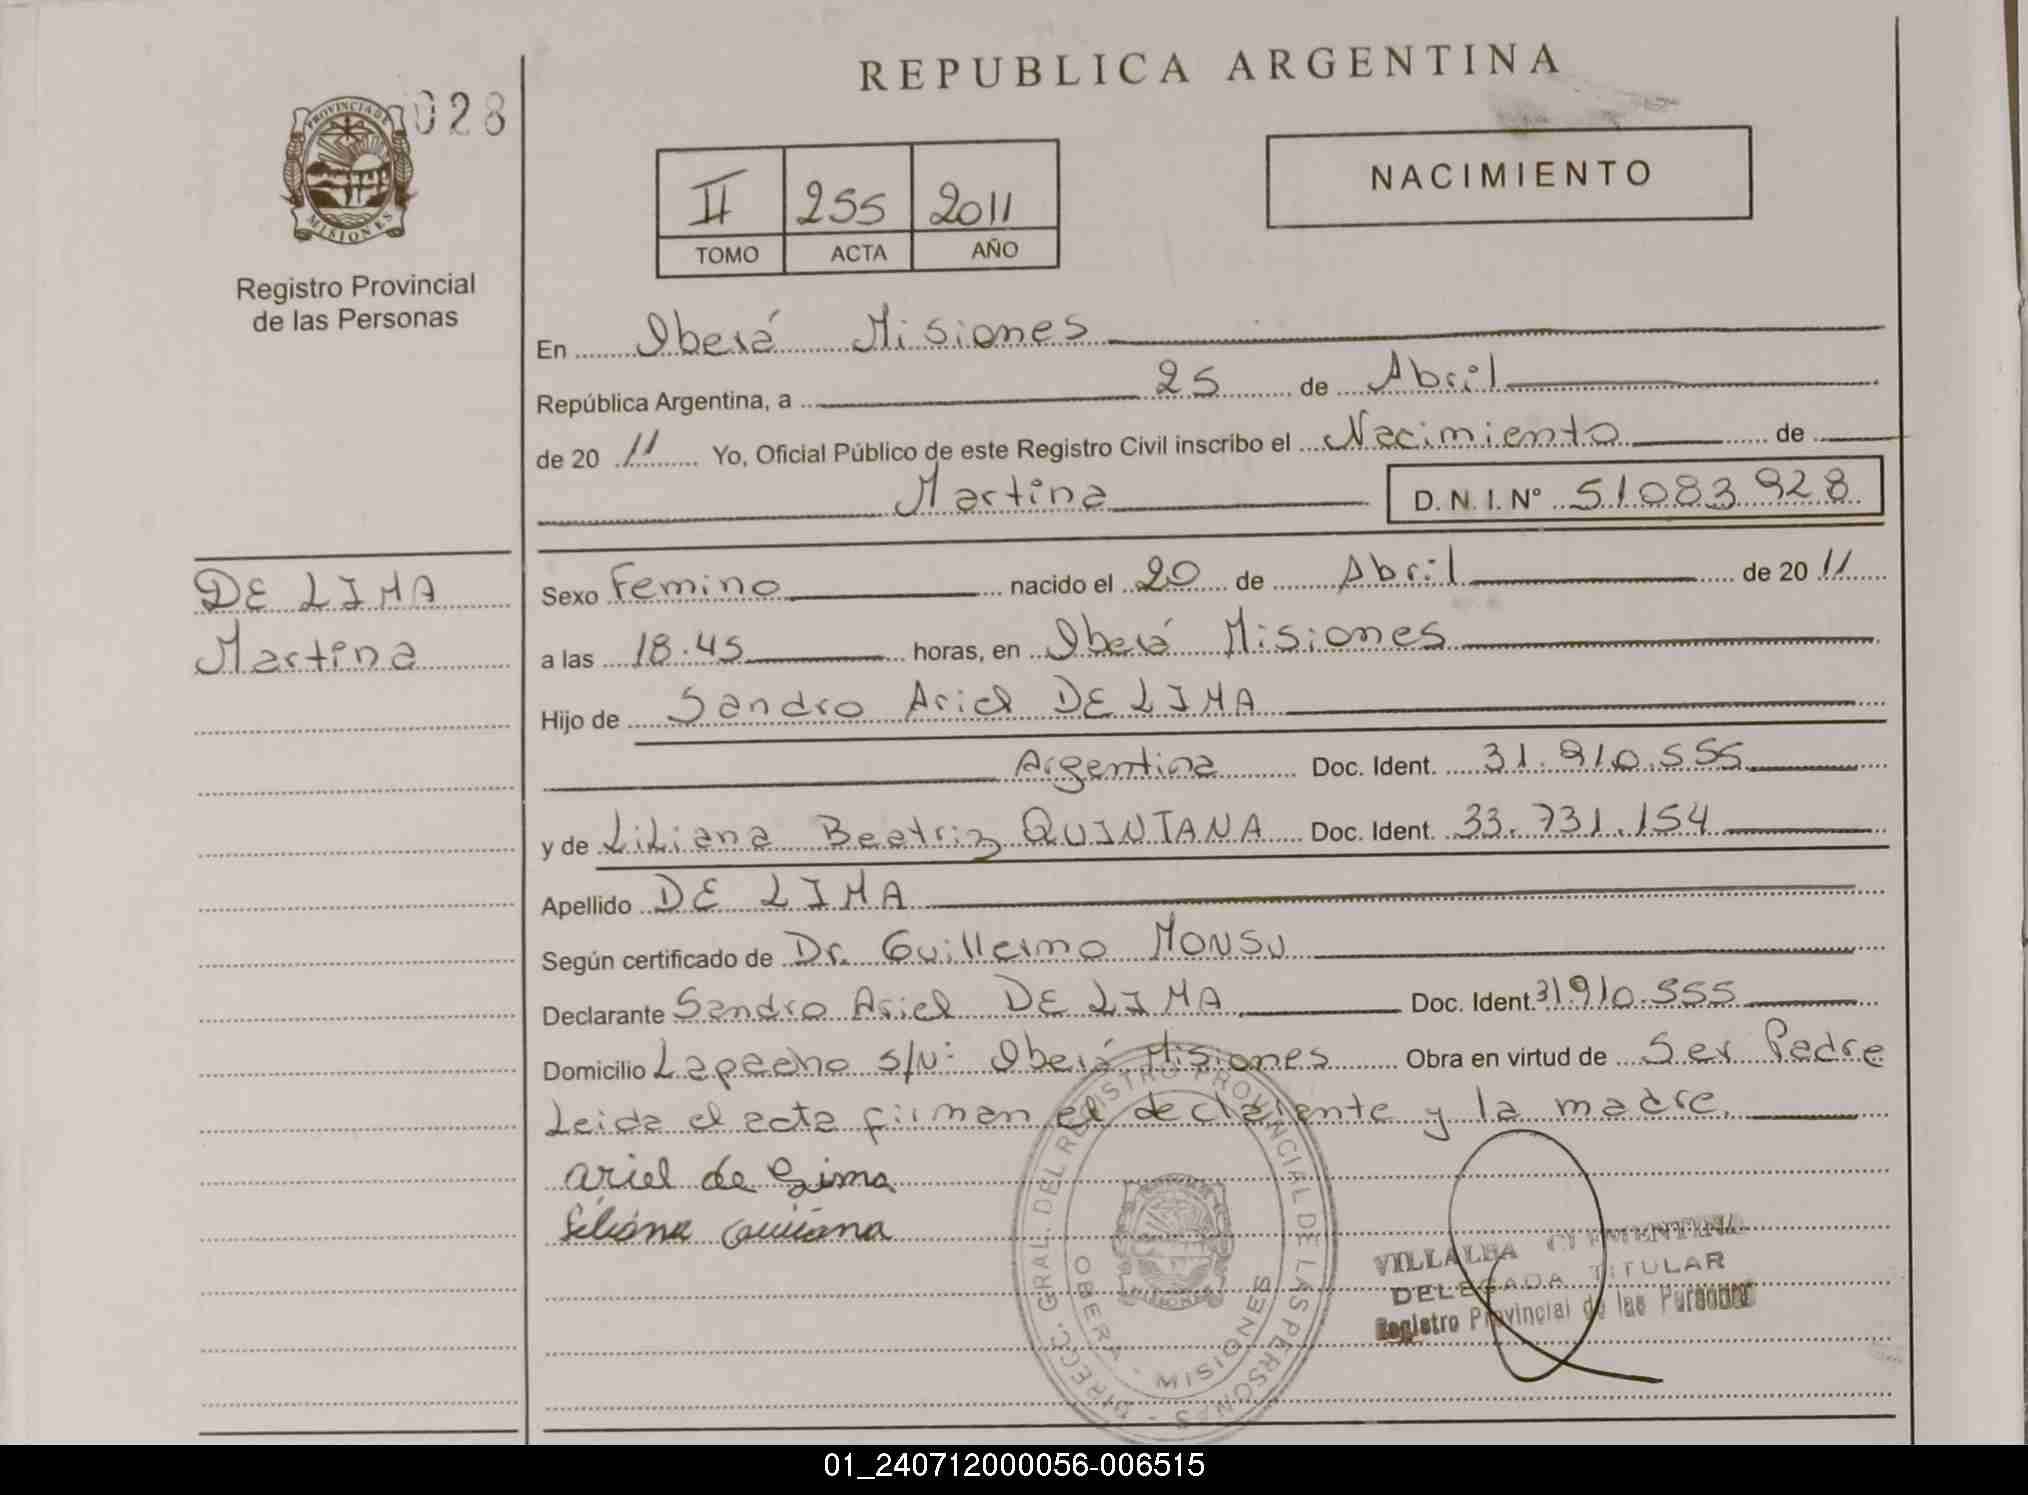 REPUBLICA ARGENTINA
028
PROVINCIA DE
MISIONES
Registro Provincial
de las Personas
II 255 2011
TOMO ACTA AÑO
NACIMIENTO
En Oberá Misiones
República Argentina, a 25 de Abril
de 20 11 Yo, Oficial Público de este Registro Civil inscribo el Nacimiento de
Martina D. N. I. Nº 51083928
DE LIMA
Martina
Sexo Femino nacido el 20 de Abril de 20 11
a las 18.45 horas, en Oberá Misiones
Hijo de Sandro Ariel DE LIMA
Argentina Doc. Ident. 31.910.555
y de Liliana Beatriz QUINTANA Doc. Ident. 33.731.154
Apellido DE LIMA
Según certificado de Dr. Guillermo MONSU
Declarante Sandro Ariel DE LIMA Doc. Ident. 31910.555
Domicilio Lapacho s/N: Oberá Misiones Obra en virtud de Ser Padre
Leida el acta firman el declarente y la madre.
Ariel de Lima
DIRECC. GRAL. DEL REGISTRO PROVINCIAL DE LAS PERSONAS
OBERA - MISIONES
VILLALBA
DELEGADA TITULAR
Registro Provincial de las Personas
01_240712000056-006515